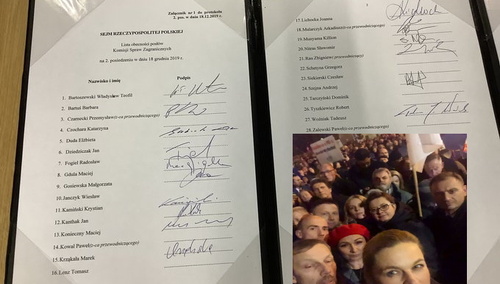 Załącznik nr 1 do protokołu
2. pos. w dniu 18.12.2019 r.
SEJM RZECZYPOSPOLITEJ POLSKIEJ
Lista obecności posłów
Komisji Spraw Zagranicznych
na 2. posiedzeniu w dniu 18 grudnia 2019 r.
Nazwisko i imię Podpis
1. Bartoszewski Władysław Teofil
2. Bartuś Barbara
3. Czarnecki Przemysław(z-ca przewodniczącego)
4. Czochara Katarzyna
5. Duda Elżbieta
6. Dziedziczak Jan
7. Fogiel Radosław
8. Gdula Maciej
9. Gosiewska Małgorzata
10. Janczyk Wiesław
11. Kamiński Krystian
12. Kanthak Jan
13. Konieczny Maciej
14. Kowal Paweł(z-ca przewodniczącego)
15. Krząkała Marek
16. Lenz Tomasz
17. Lichocka Joanna
18. Mularczyk Arkadiusz(z-ca przewodniczącego)
19. Munyama Killion
20. Nitras Sławomir
21. Rau Zbigniew( przewodniczący)
22. Schetyna Grzegorz
23. Siekierski Czesław
24. Szejna Andrzej
25. Tarczyński Dominik
26. Tyszkiewicz Robert
27. Woźniak Tadeusz
28. Zalewski Paweł(z-ca przewodniczącego)